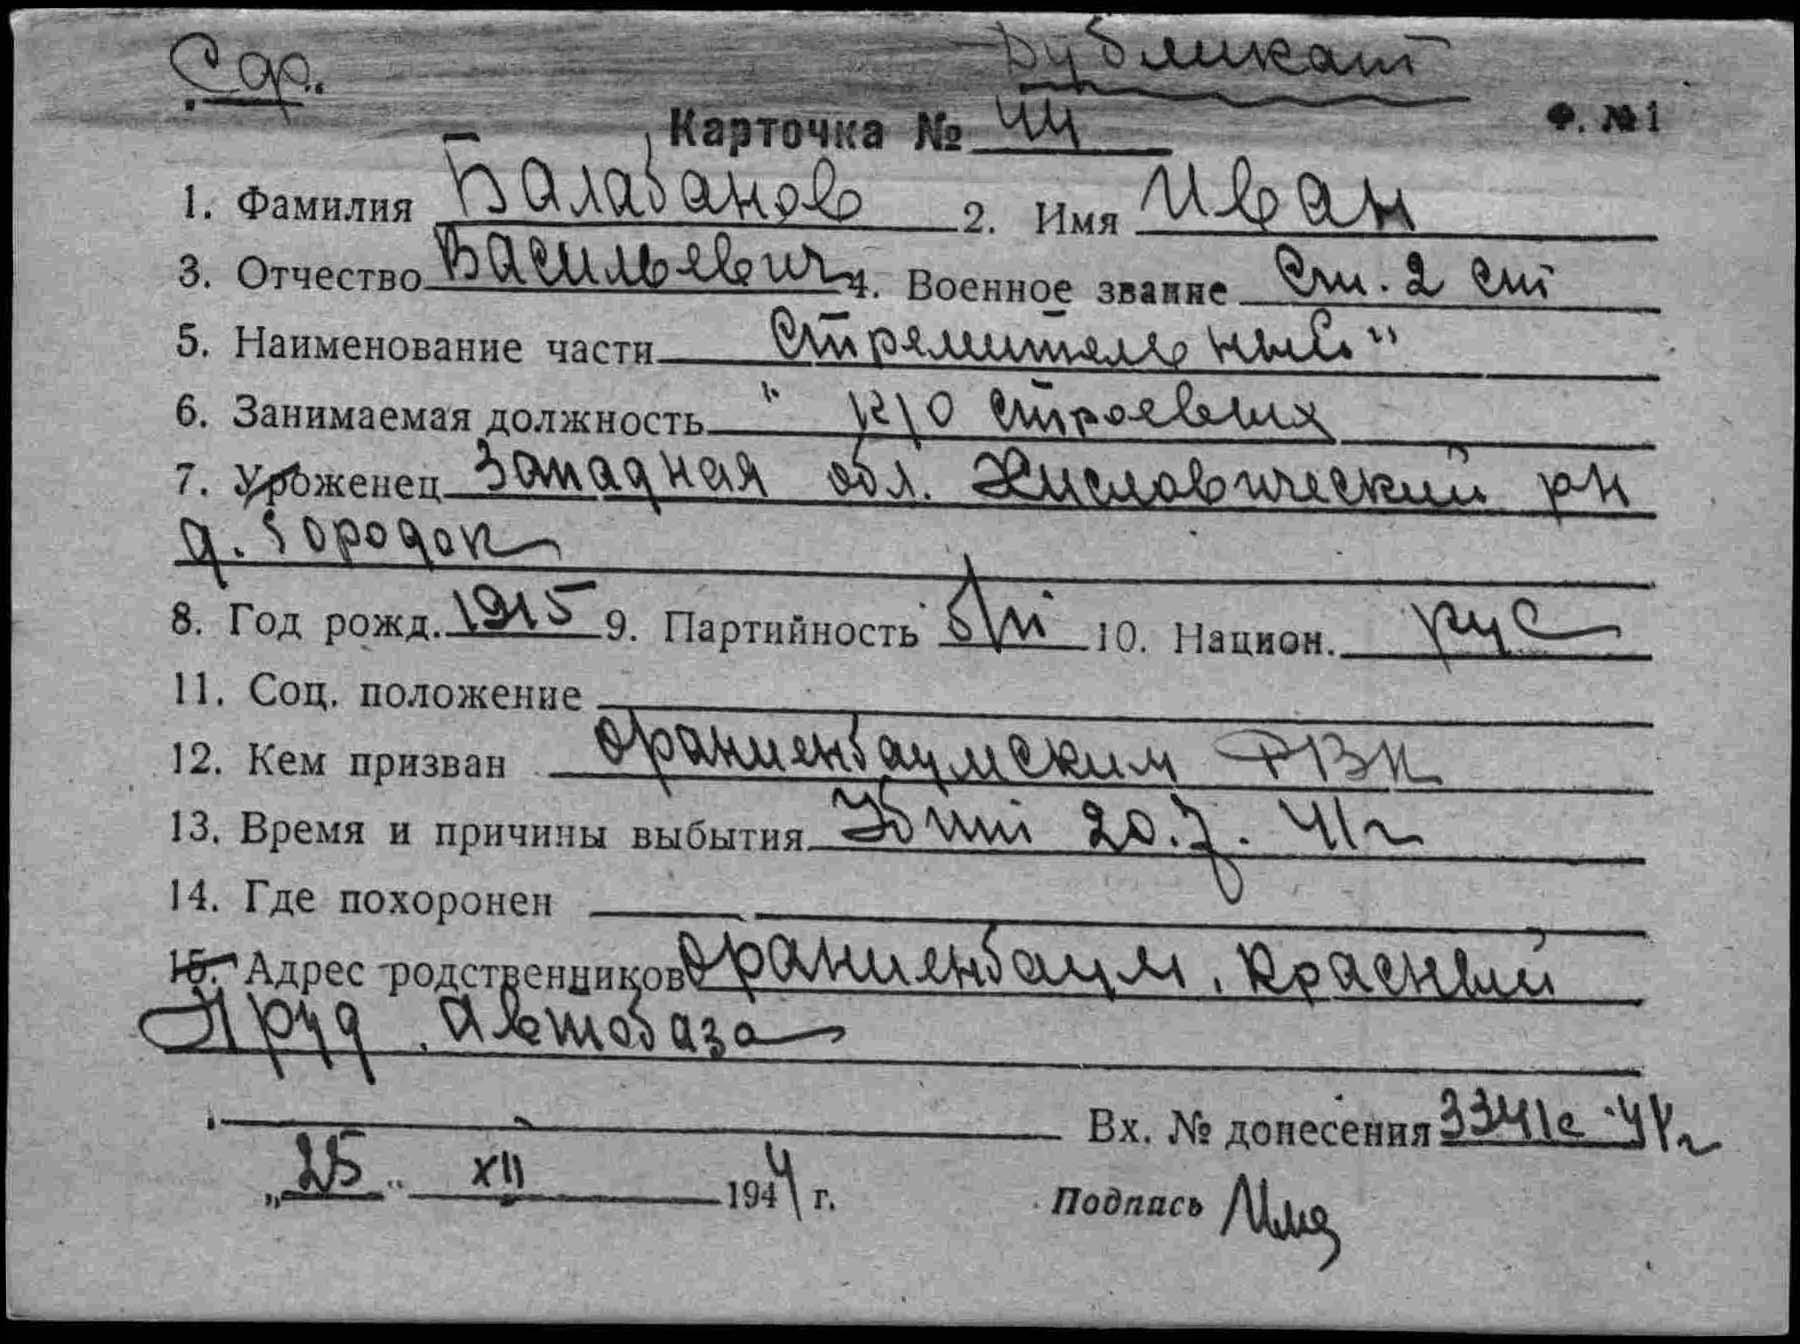 Сф. Дубликат
Карточка № 44 Ф. №1
1. Фамилия Балабанов 2. Имя Иван
3. Отчество Васильевич 4. Военное звание Ст. 2 ст
5. Наименование части Стремительный"
6. Занимаемая должность " к/о строевых
7. Уроженец Западная обл. Хисловический рн
д. Городок
8. Год рожд. 1915 9. Партийность б/п 10. Национ. рус
11. Соц. положение
12. Кем призван Ораниенбаумским РВК
13. Время и причины выбытия Убит 20.7.41г
14. Где похоронен
15. Адрес родственников Ораниенбаум, Красный
Пруд. Автобаза
Вх. № донесения 3341с
„25" XII 1944 г. Подпись